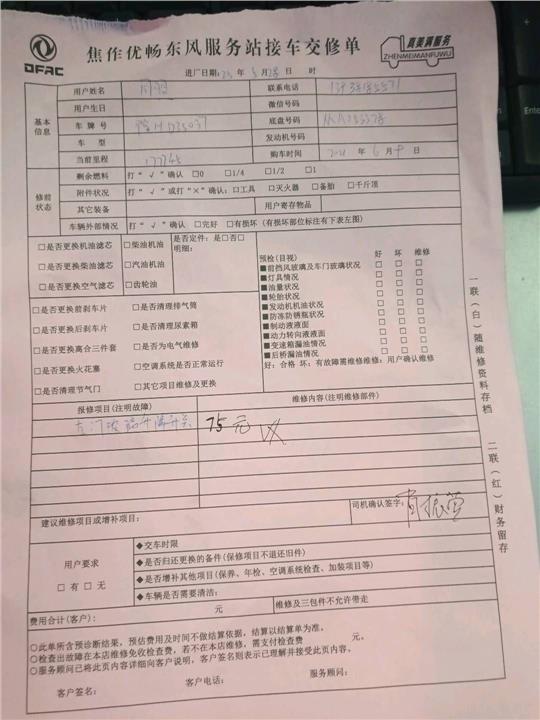 DFAC
焦作优畅东风服务站接车交修单
真美满服务
ZHENMEIMANFUWU
进厂日期: 25 年 5月28日 时
基本信息
用户姓名 联系电话
用户生日 微信号码
车牌号 底盘号码
车型 发动机号码
当前里程 177745 购车时间 2021 年 6 月 日
修前状态
剩余燃料 打“√”确认 □0 □1/4 □1/2 □1
附件状况 打“√”或打“×”确认:□工具 □灭火器 □备胎 □千斤顶
其它装备 用户寄存物品
车辆外部情况 打“√”确认 □完好 □有损坏(有损坏部位标注有下表左图)
□是否更换机油滤芯 □柴油机油 是否定件:是□否□
□是否更换柴油滤芯 □汽油机油 明细:
□是否更换空气滤芯 □齿轮油
□是否更换前刹车片 □是否清理排气筒
□是否更换后刹车片 □是否清理尿素箱
□是否更换离合三件套 □是否为电气维修
□是否更换火花塞 □空调系统是否正常运行
□是否清理节气门 □其它项目维修及更换
预检(目视) 好 坏 维修
■前挡风玻璃及车门玻璃状况 □ □ □
■灯具情况 □ □ □
■油量状况 □ □ □
■轮胎状况 □ □ □
■发动机机油状况 □ □ □
■防冻防锈瓶状况 □ □ □
■制动液液面 □ □ □
■动力转向液液面 □ □ □
■变速箱漏油情况 □ □ □
■后桥漏油情况 □ □ □
好:合格 坏:有故障需维修维修:用户确认维修
报修项目(注明故障) 维修内容(注明维修部件)
右门玻璃升降开关 75元
建议维修项目或增补项目: 司机确认签字:
用户要求
□有 □无
◆交车时限
◆是否归还更换的备件(保修项目不退还旧件)
◆是否增补其他项目(保养、年检、空调系统检查、加装项目等)
◆车辆是否需要清洁:
费用合计(客户): 元 维修及三包件不允许带走
○此单所含预诊断结果,预估费用及时间不做结算依据,结算以结算单为准。
○检查出故障在本店维修免收检查费,若不在本店维修,需支付检查费 元。
○服务顾问已将此页内容详细向客户说明,客户签名则表示已理解并接受此页内容。
客户签名: 客户电话: 服务顾问:
一联(白)随维修资料存档
二联(红)财务留存